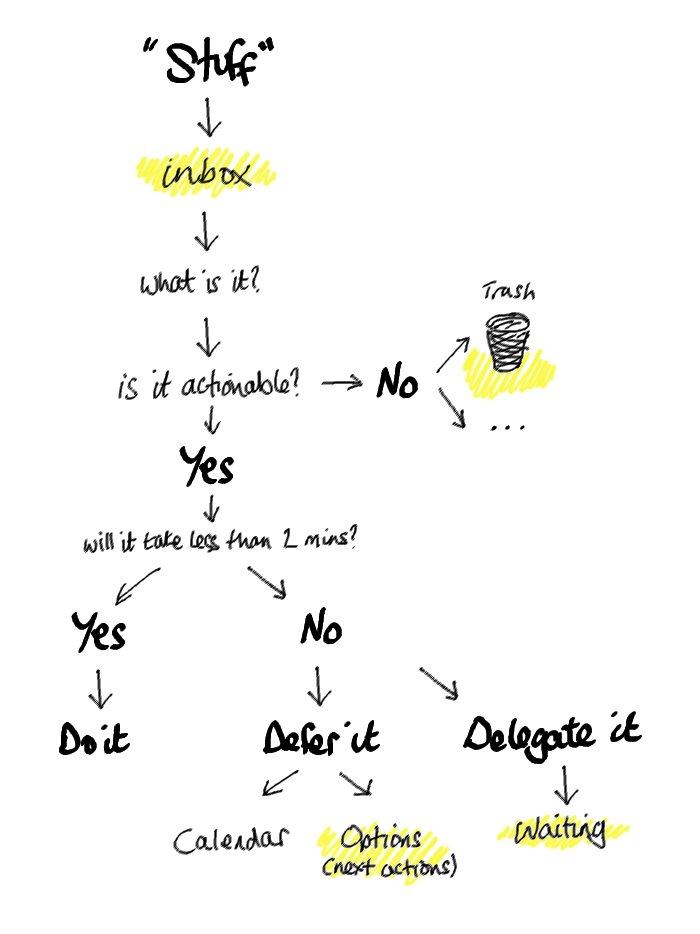 "Stuff"
inbox
What is it?
Trash
is it actionable?
No
...
Yes
will it take less than 2 mins?
Yes
No
Do it
Defer it
Delegate it
Calendar
Options
(next actions)
Waiting